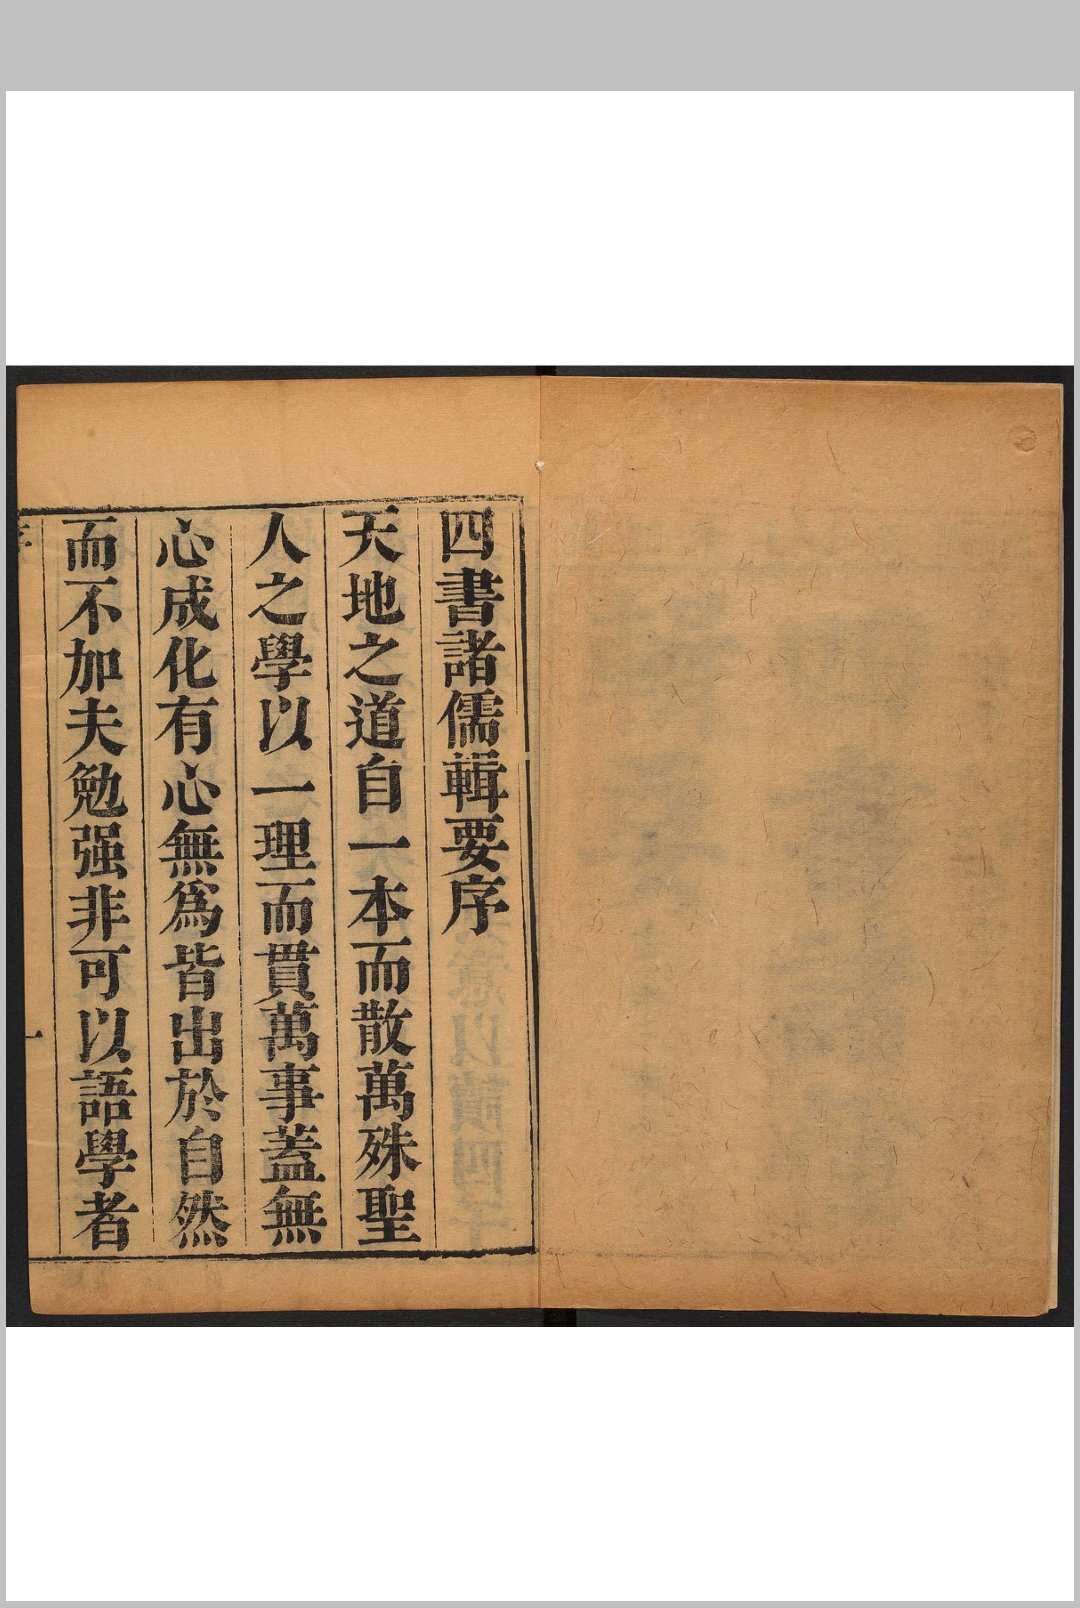 四書諸儒輯要序
天地之道自一本而散萬殊聖
人之學以一理而貫萬事蓋無
心成化有心無爲皆出於自然
而不加夫勉强非可以語學者
一